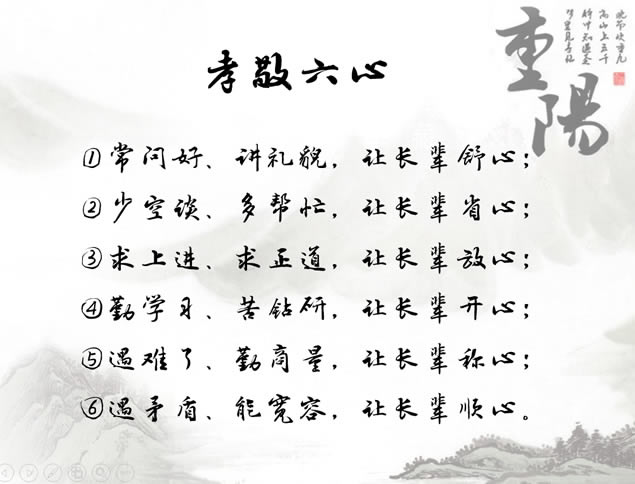 孝敬六心
重陽
①常问好、讲礼貌，让长辈舒心；
②少空谈、多帮忙，让长辈省心；
③求上进、求正道，让长辈放心；
④勤学习、苦钻研，让长辈开心；
⑤遇难了、勤商量，让长辈称心；
⑥遇矛盾、能宽容，让长辈顺心。